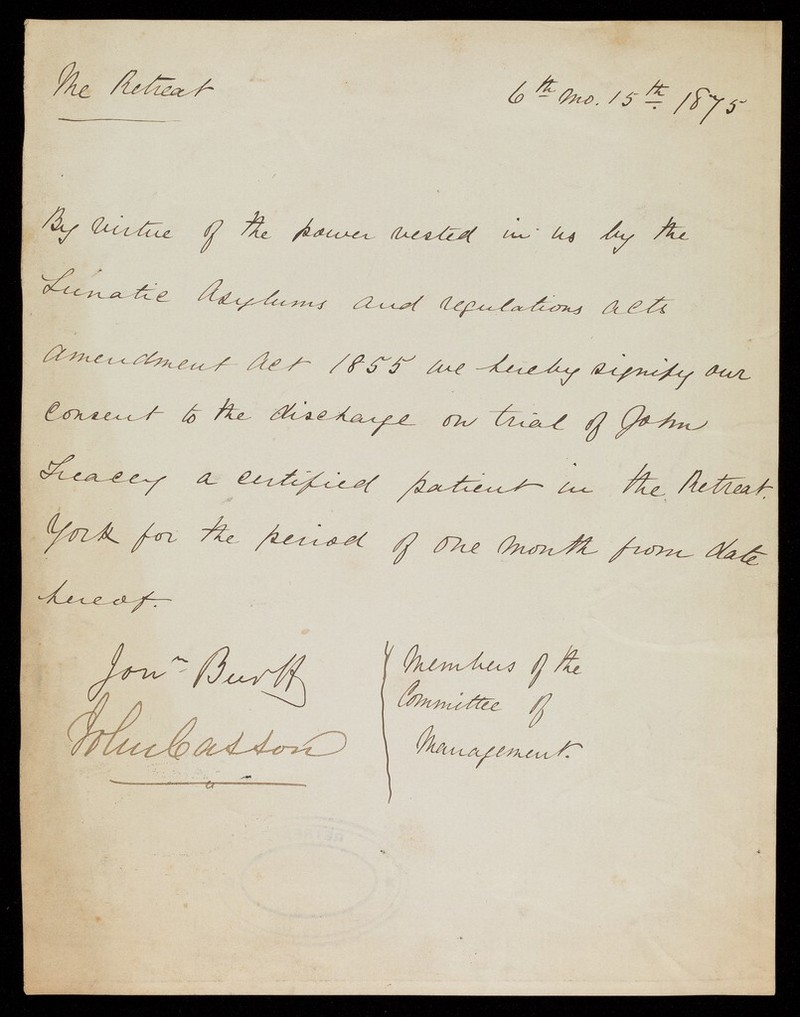 The Retreat
6th Mo. 15th 1875
By virtue of the power vested in us by the
Lunatic Asylums and regulations acts
amendment Act 1855 we hereby signify our
consent to the discharge on trial of John
Treacey a certified patient in the Retreat.
York for the period of one month from date
hereof.
Jonn Burtt
John Casson
Members of the
Committee of
Management.